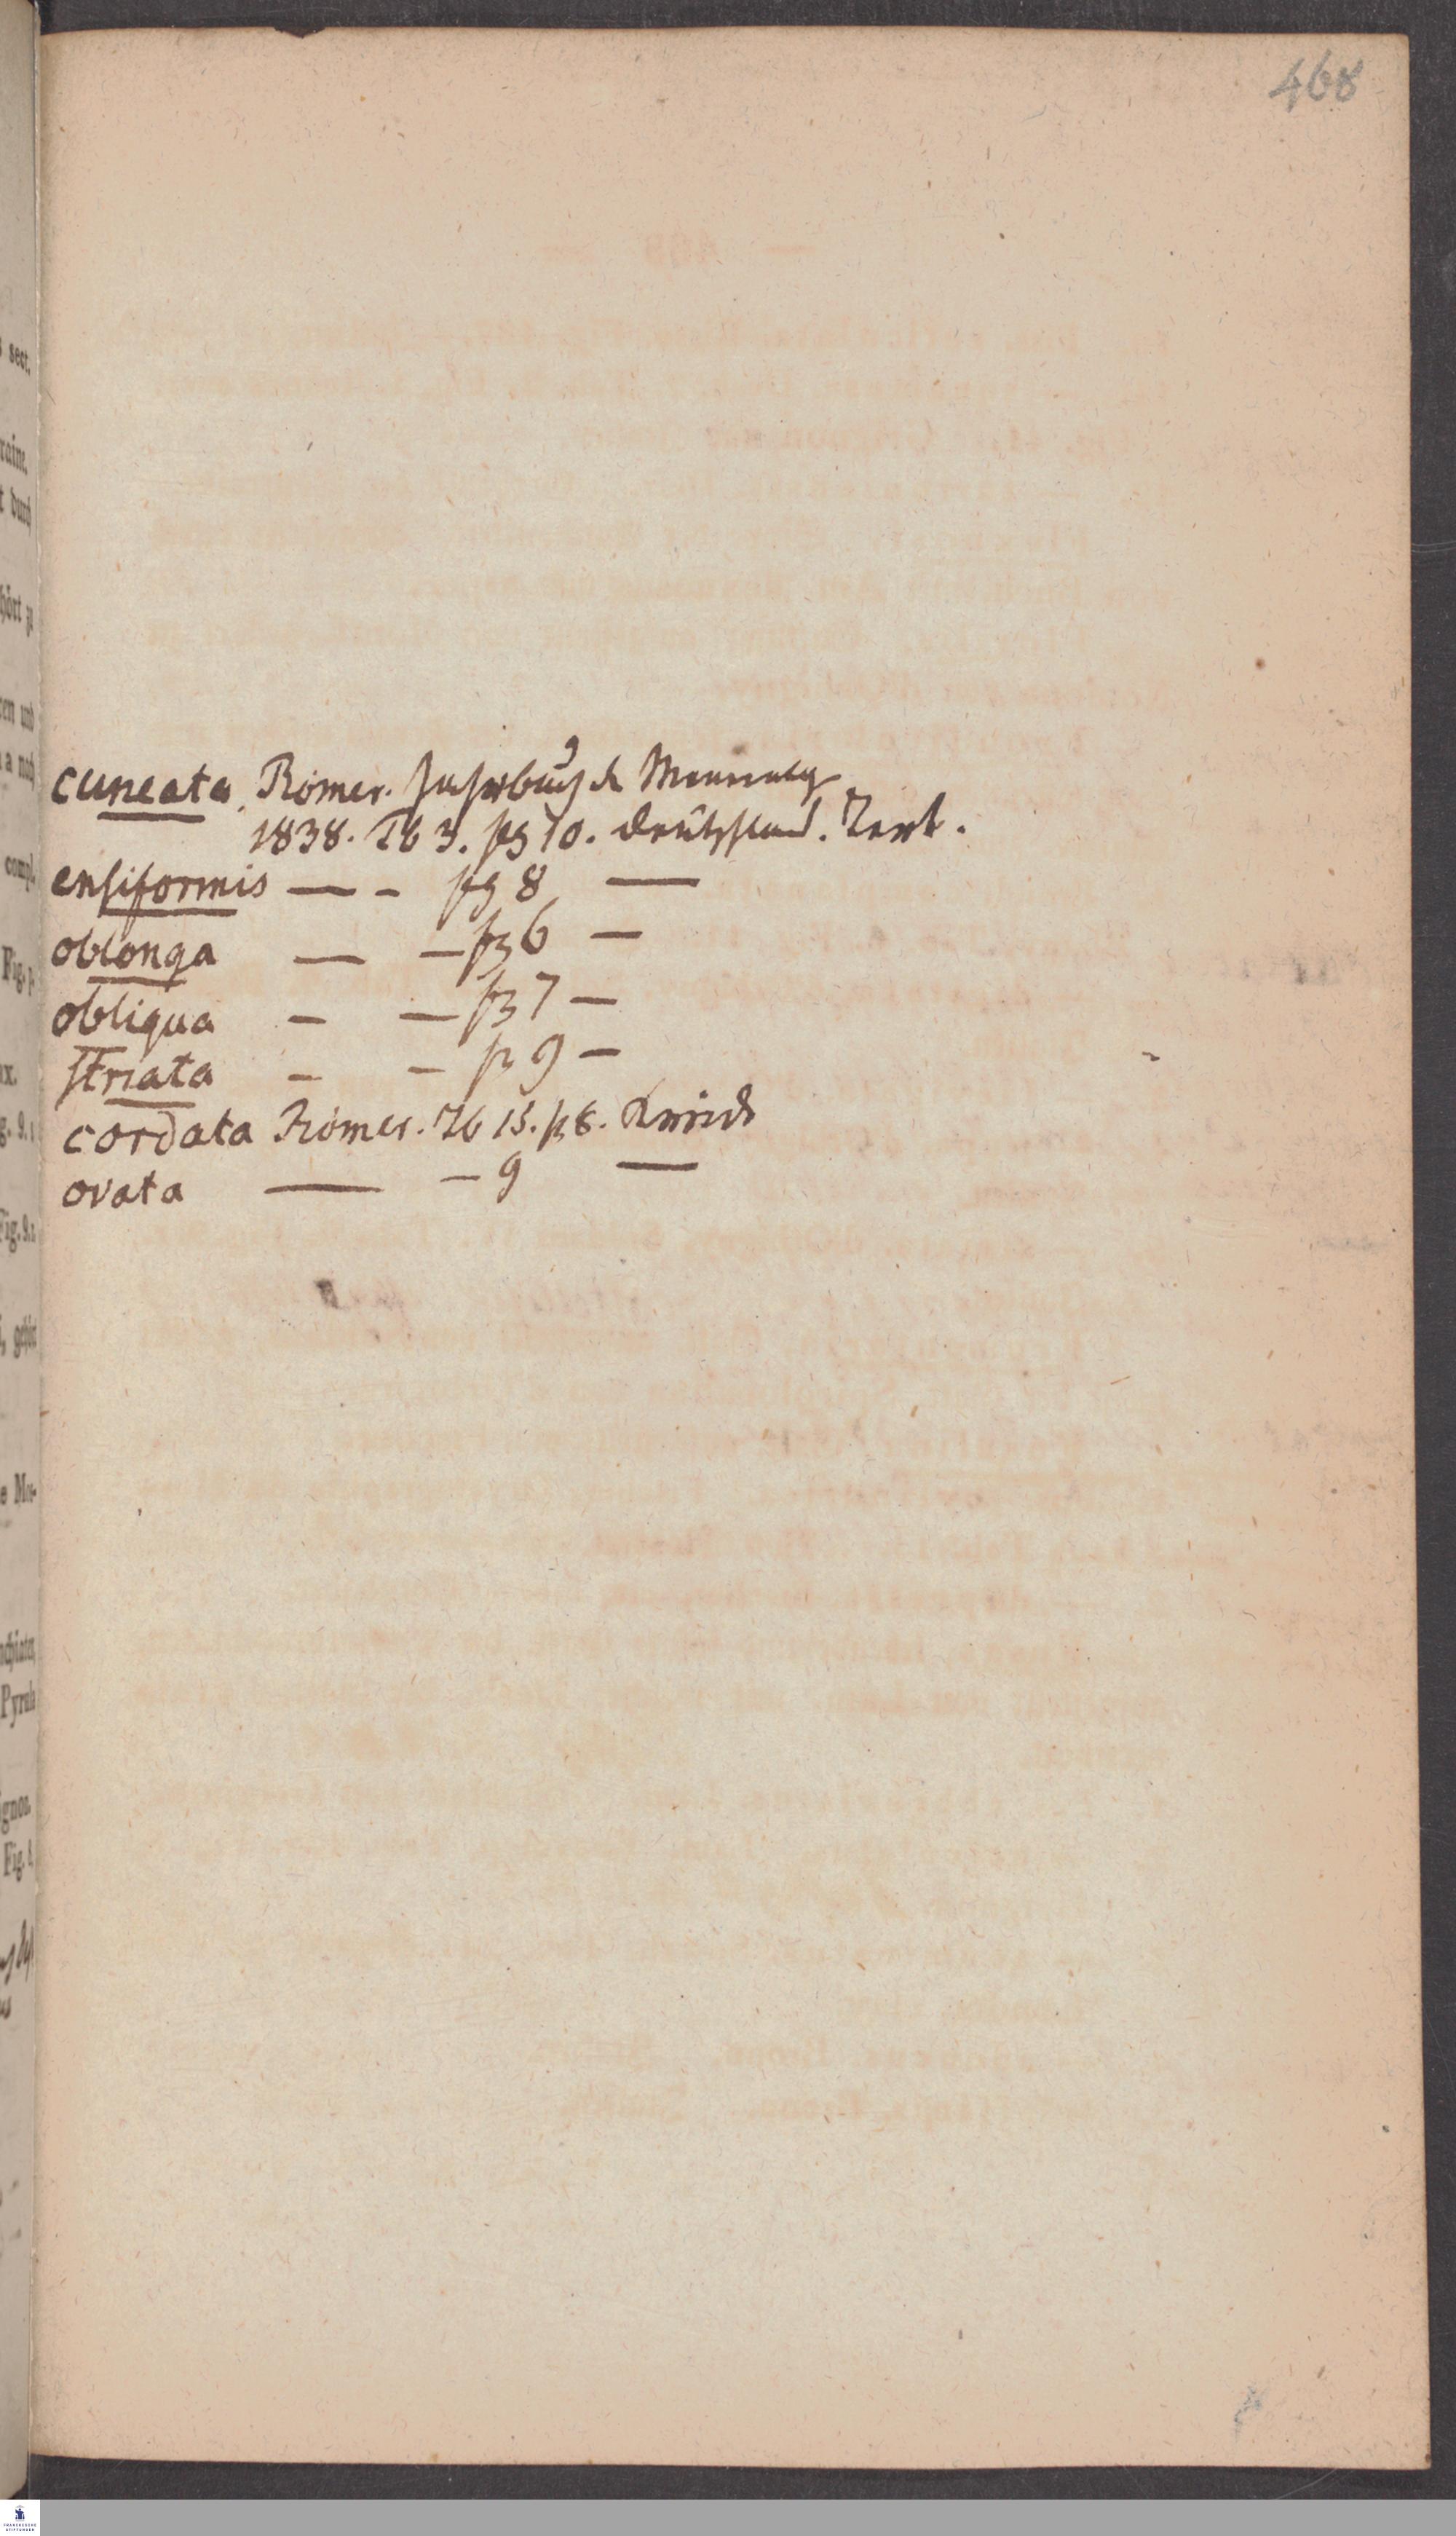 468
cuneata. Römer. Jahrbuch d. Mineralg
1838. Tb 3. fg 10. deutschland. Tert.
ensiformis — - fg 8 —
oblonga — — fg 6 —
obliqua - — fg 7 —
striata - - fg 9 —
cordata Römer. Tb 15. fg 8. Kreide
ovata — - 9 —